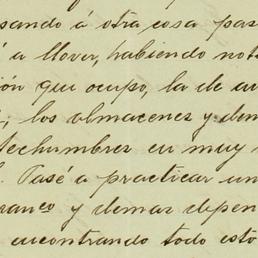 sando á otra cosa pas
á llover, habiendo not
ión que ocupo, la de
, los almacenes y dem
techumbres en muy
Pasé a practicar un
ranco y demas depen
encontrando todo esto